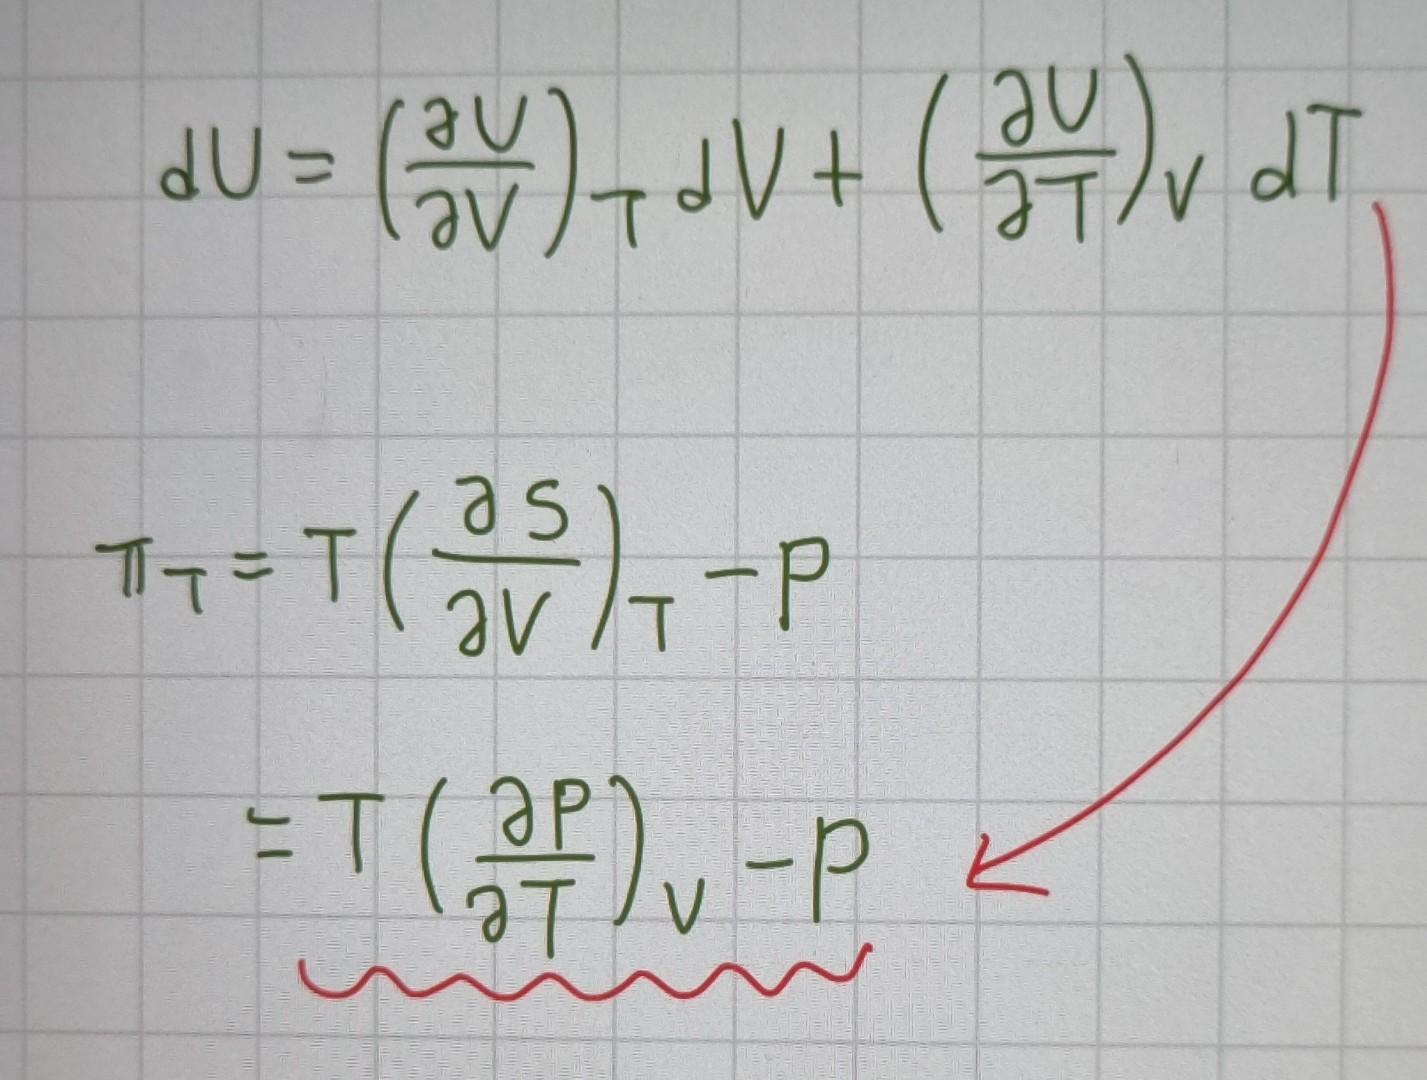 dU = (∂U/∂V)_T dV + (∂U/∂T)_V dT
π_T = T(∂S/∂V)_T - P
= T(∂P/∂T)_V - P